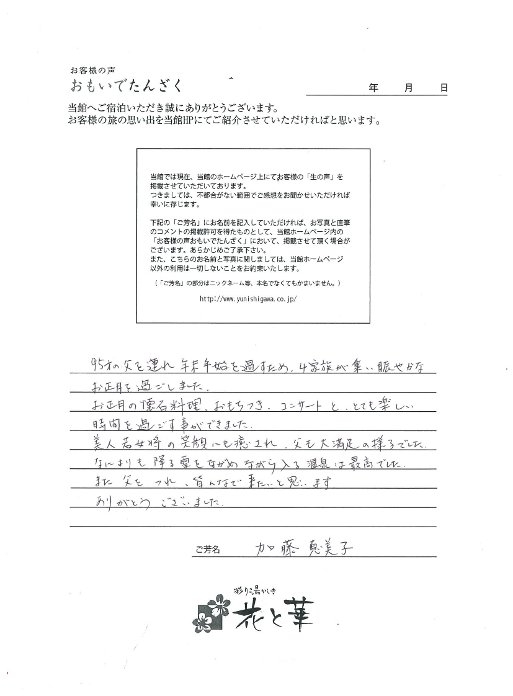 お客様の声
おもいでたんざく
年 月 日
当館へご宿泊いただき誠にありがとうございます。
お客様の旅の思い出を当館HPにてご紹介させていただければと思います。
当館では現在、当館のホームページ上にてお客様の「生の声」を
掲載させていただいております。
つきましては、不都合がない範囲でご感想をお聞かせいただければ
幸いに存じます。
下記の「ご芳名」にお名前を記入していただければ、お写真と直筆
のコメントの掲載許可を得たものとして、当館ホームページ内の
「お客様の声おもいでたんざく」において、掲載させて頂く場合が
ございます。あらかじめご了承下さい。
また、こちらのお名前と写真に関しましては、当館ホームページ
以外の利用は一切しないことをお約束いたします。
(「ご芳名」の部分はニックネーム等、本名でなくてもかまいません。)
http://www.yunishigawa.co.jp/
95才の父を連れ 年末年始を過すため、4家族が集い賑やかな
お正月を過ごしました。
お正月の懐石料理、おもちつき、コンサートと、とても楽しい
時間を過ごす事ができました。
美人若女将の笑顔にも癒され、父も大満足の様子でした。
なによりも 降る雪をながめながら入る温泉は最高でした。
また 父を つれ、皆んなで来たいと思います
ありがとう ございました。
ご芳名 加藤 恵美子
彩り湯かしき
花と華